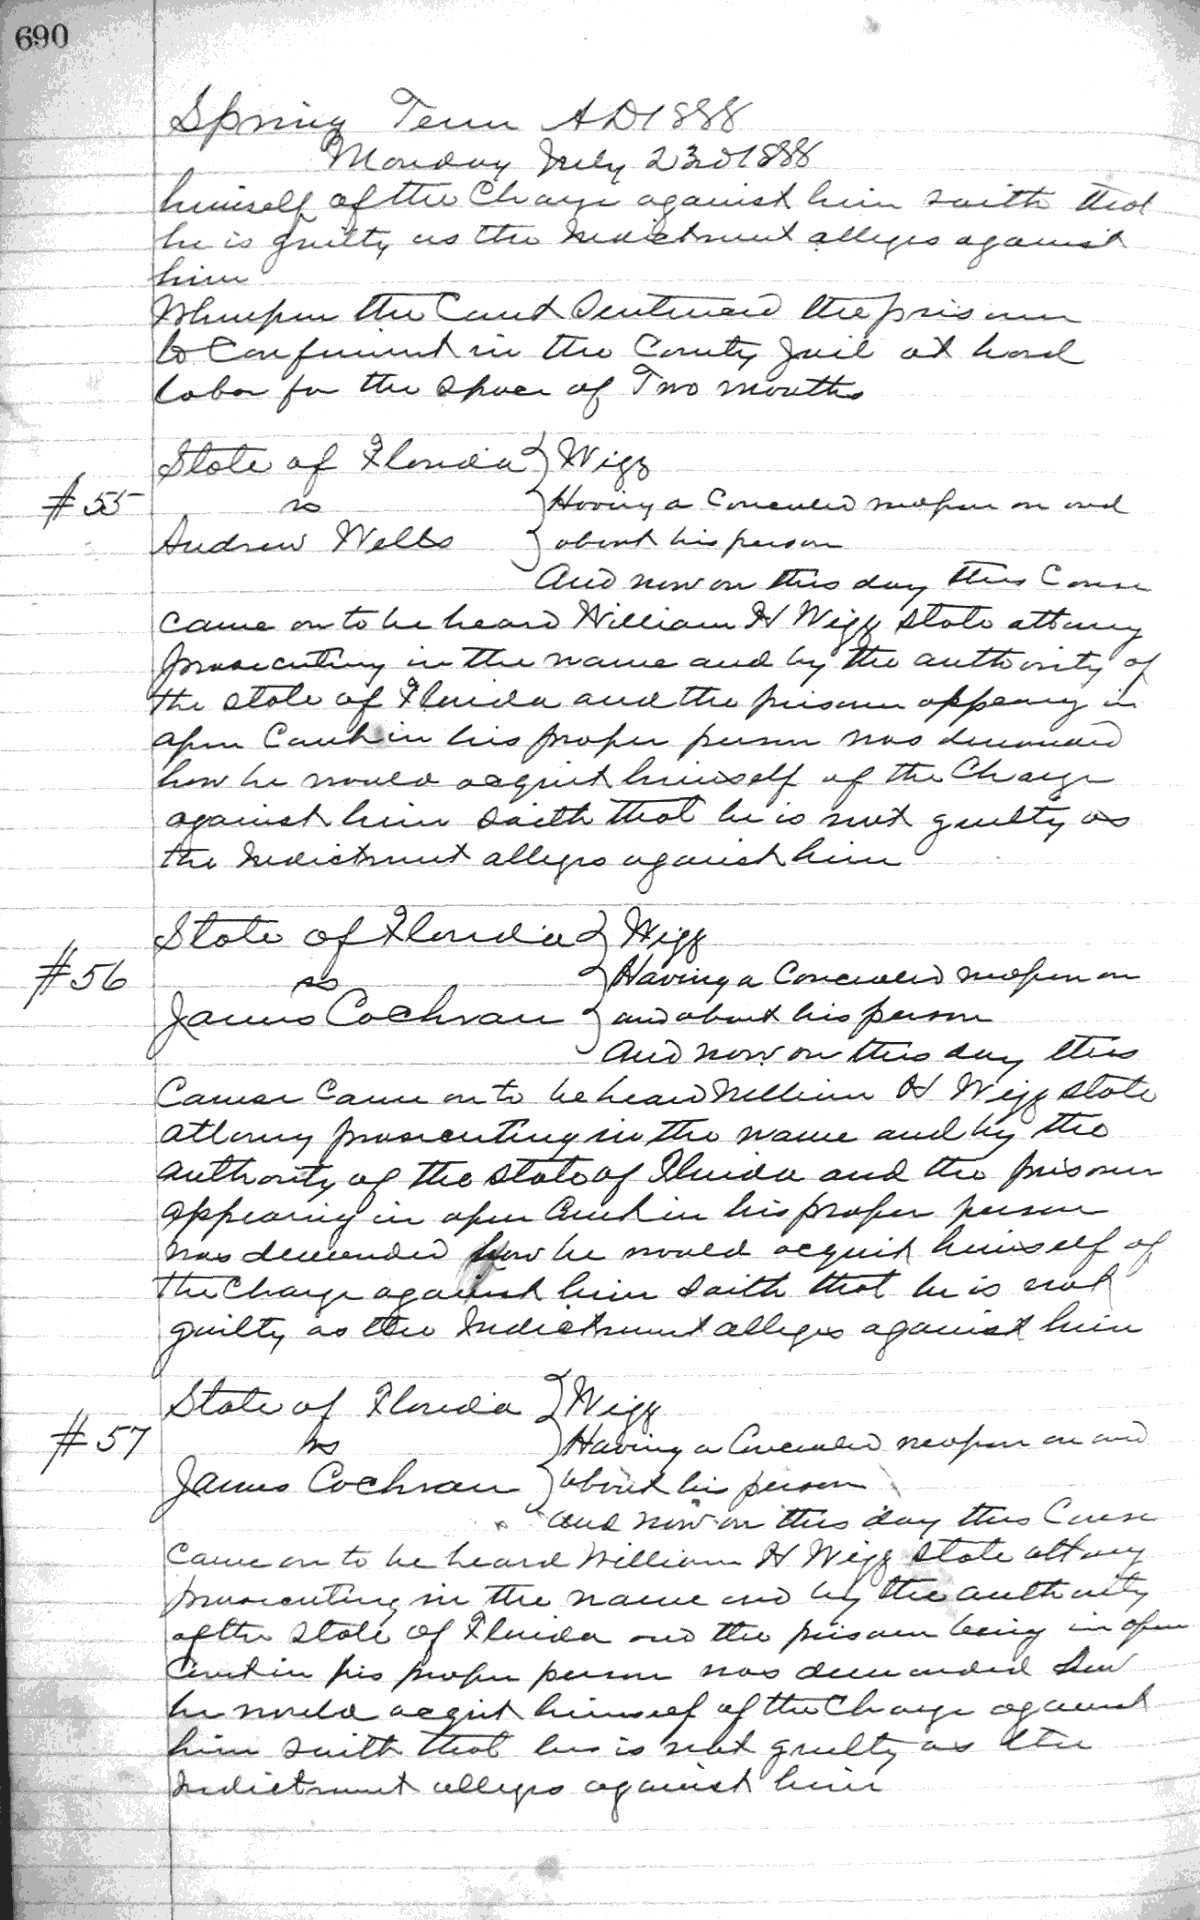 690
Spring Term AD 1888
Monday July 23d 1888
himself of the Charge against him saith that
he is guilty as the Indictment alleges against
him
Whereupon the Court Sentenced the prisoner
to Confinement in the County Jail at hard
labor for the space of Two months
State of Florida } Wigg
#55 vs } Having a Concealed weapon on and
Andrew Wells } about his person
And now on this day this Cause
came on to be heard William H Wigg state attorney
prosecuting in the name and by the authority of
the state of Florida and the prisoner appearing in
open Court in his proper person was demanded
how he would acquit himself of the Charge
against him saith that he is not guilty as
the Indictment alleges against him
State of Florida } Wigg
#56 vs } Having a Concealed weapon on
James Cochran } and about his person
And now on this day this
Cause Came on to be heard William H Wigg state
attorney prosecuting in the name and by the
authority of the state of Florida and the prisoner
appearing in open Court in his proper person
was demanded how he would acquit himself of
the Charge against him saith that he is not
guilty as the Indictment alleges against him
State of Florida } Wigg
#57 vs } Having a Concealed weapon on and
James Cochran } about his person
and now on this day this Cause
came on to be heard William H Wigg state attorney
prosecuting in the name and by the authority
of the state of Florida and the prisoner being in open
Court in his proper person was demanded how
he would acquit himself of the Charge against
him saith that he is not guilty as the
Indictment alleges against him